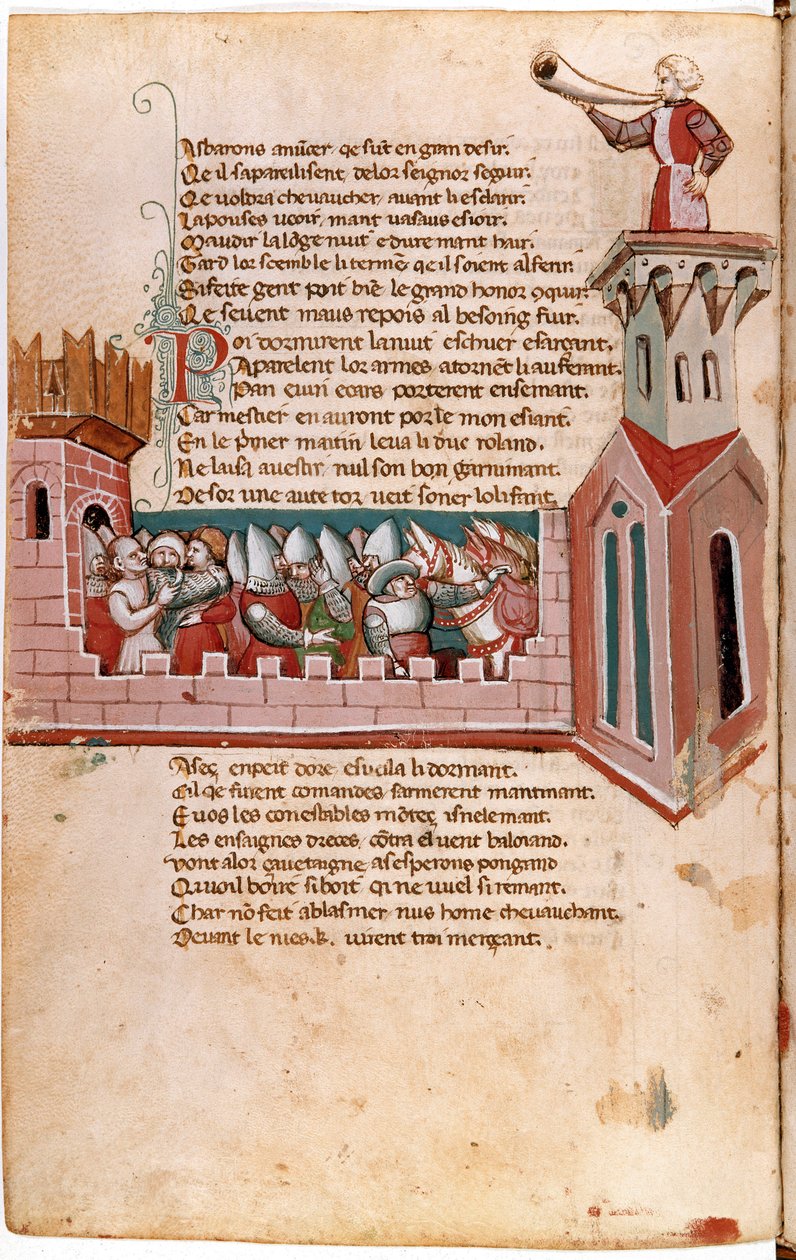 As barons anũcer, qe sũt en gran desir.
Qe il s aparailisent, de lor seignor seguir.
Qe voldra chevaucher, avant li esclarir.
La pouses veoir, mant vasaus esioir.
Maudir la lõge nuit e dure mant hair.
Tard lor scemble li termẽ qe il soient al ferir.
Si feite gent poit biẽ le grand honor ꝯquir.
Qe sevent maus repois al besoing fuir.
Poi dormirent la nuit eschuer e sarçant.
Aparelent lor armes atornẽt li auferant.
Pan e vin e cars porterent ensemant.
Car mestier en auront por le mon esiant.
En le primer maitin leva li duc roland.
Ne laisa a vestir, nuil son bon garnimant.
De sor une aute tor, veit soner l olifant.
Aseç en peit dore, esveila li dormant.
Cil qe furent comandes, s armerent mantinant.
E vos les conestables mõteç isnelemant.
Les ensaignes dreces, cõtra el vent baloiand.
Vont a lor çauetaigne a sesperons poignand
Qi voil boire si boit, qi ne vuel si remant.
Char nõ feit a blasmer, nus home chevauchant.
Devant le nies .k. virent troi mergeant.